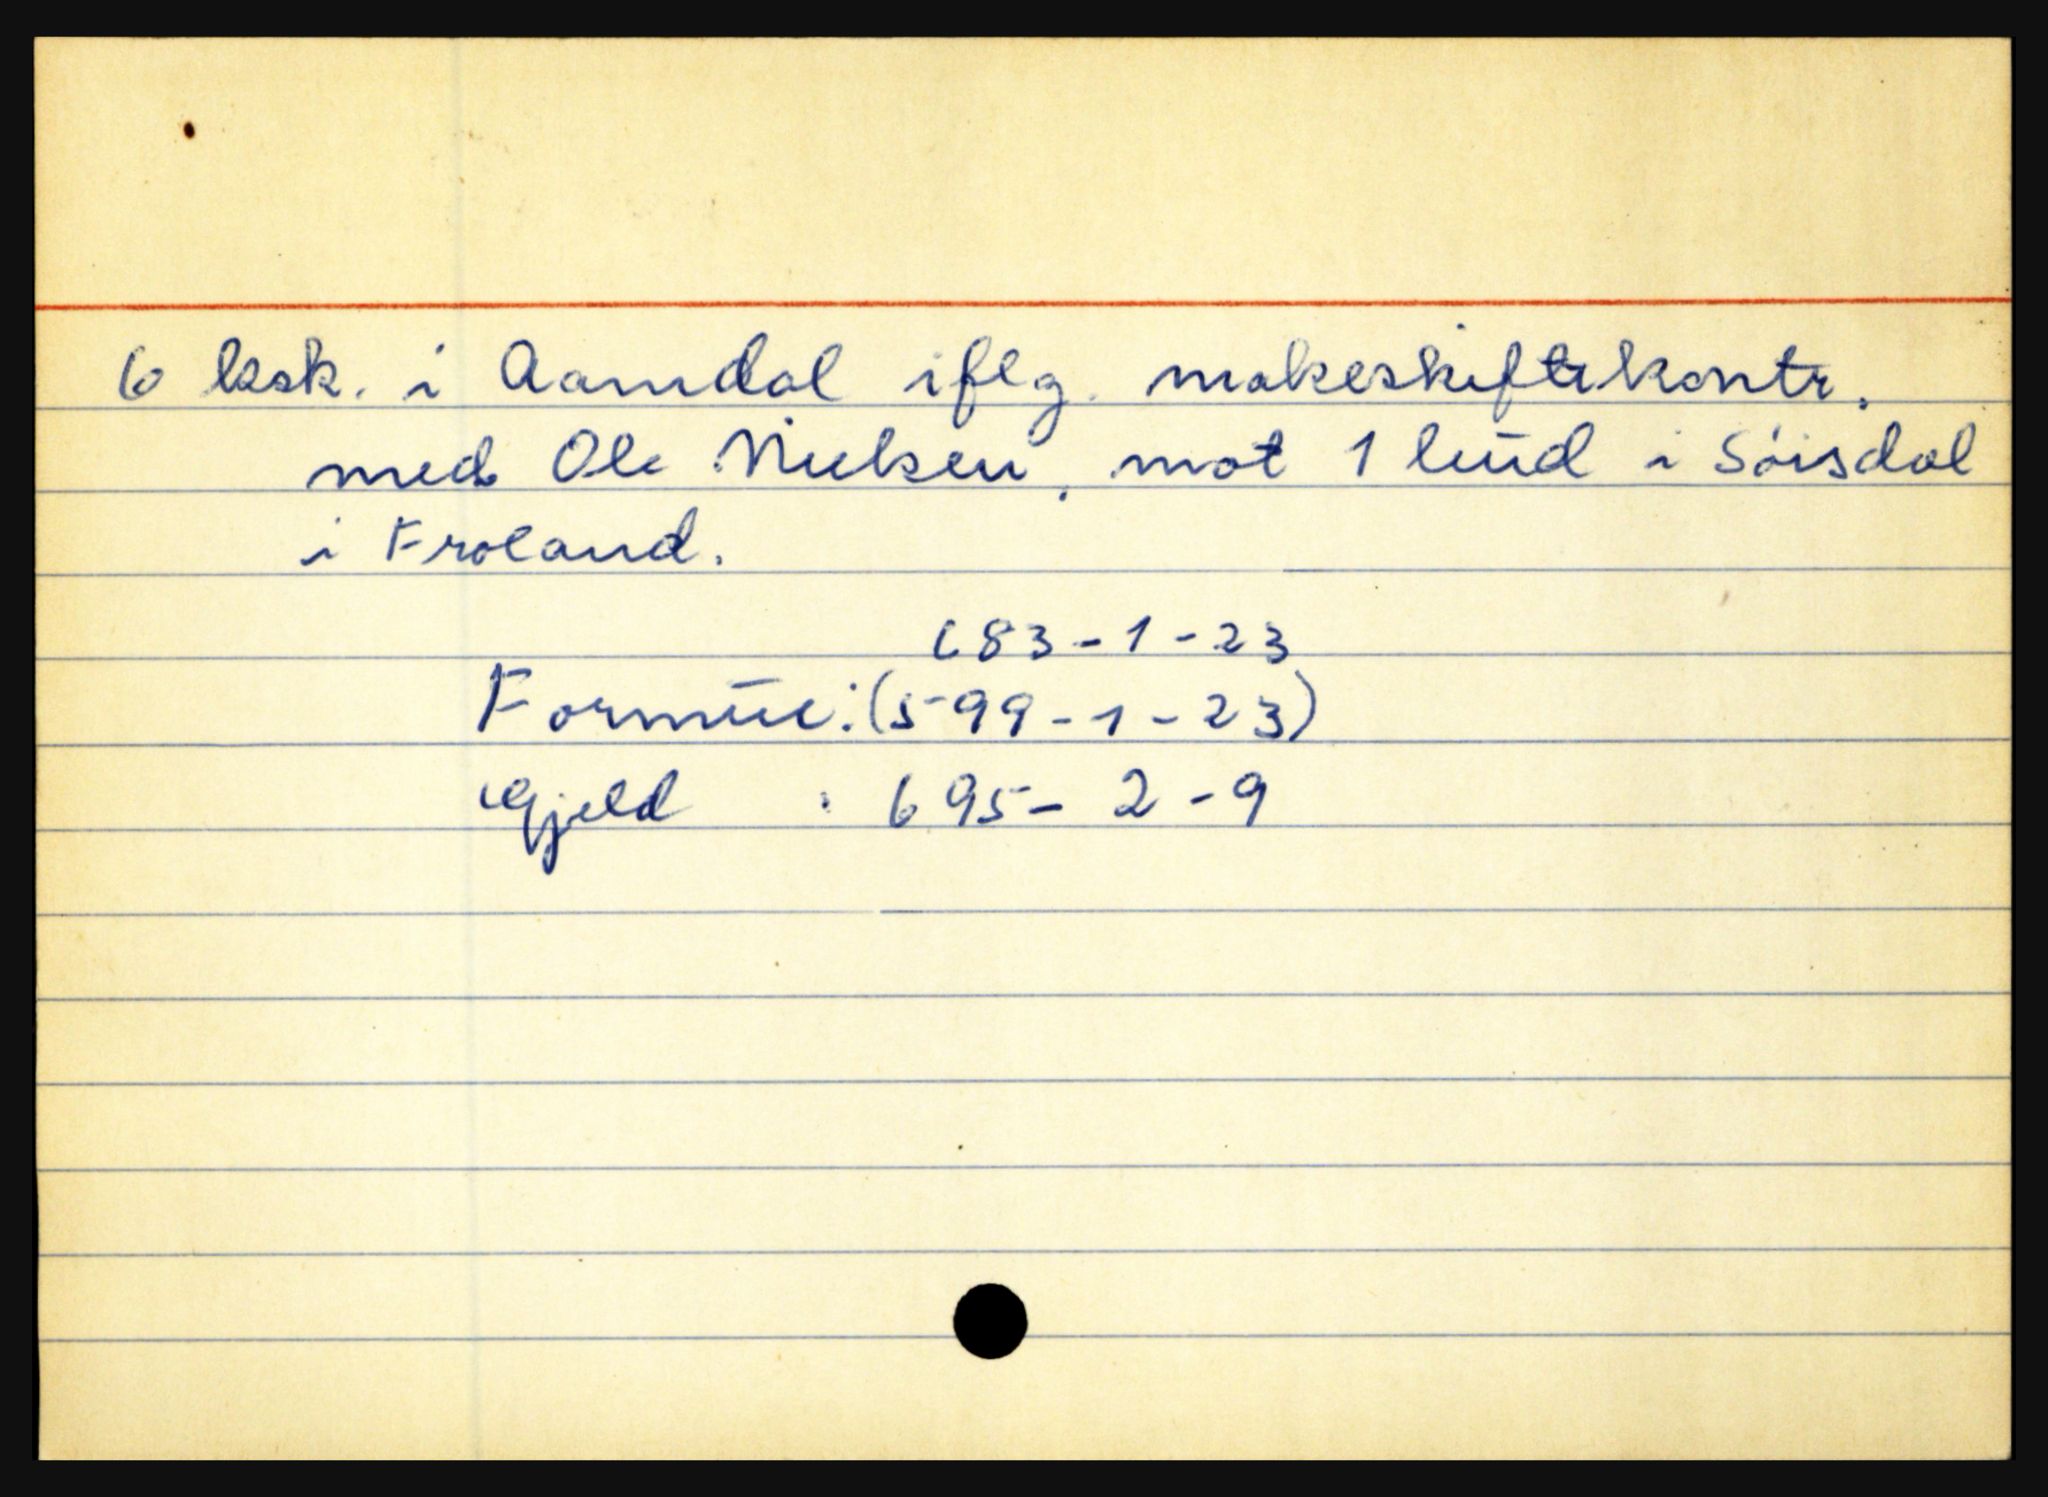 6 ksk. i Aamdal iflg. makeskiftekontr.
med Ole Nielsen, mot 1 hud i Söisdal
i Froland.
683-1-23
Formue: (599-1-23)
Gjeld : 695-2-9